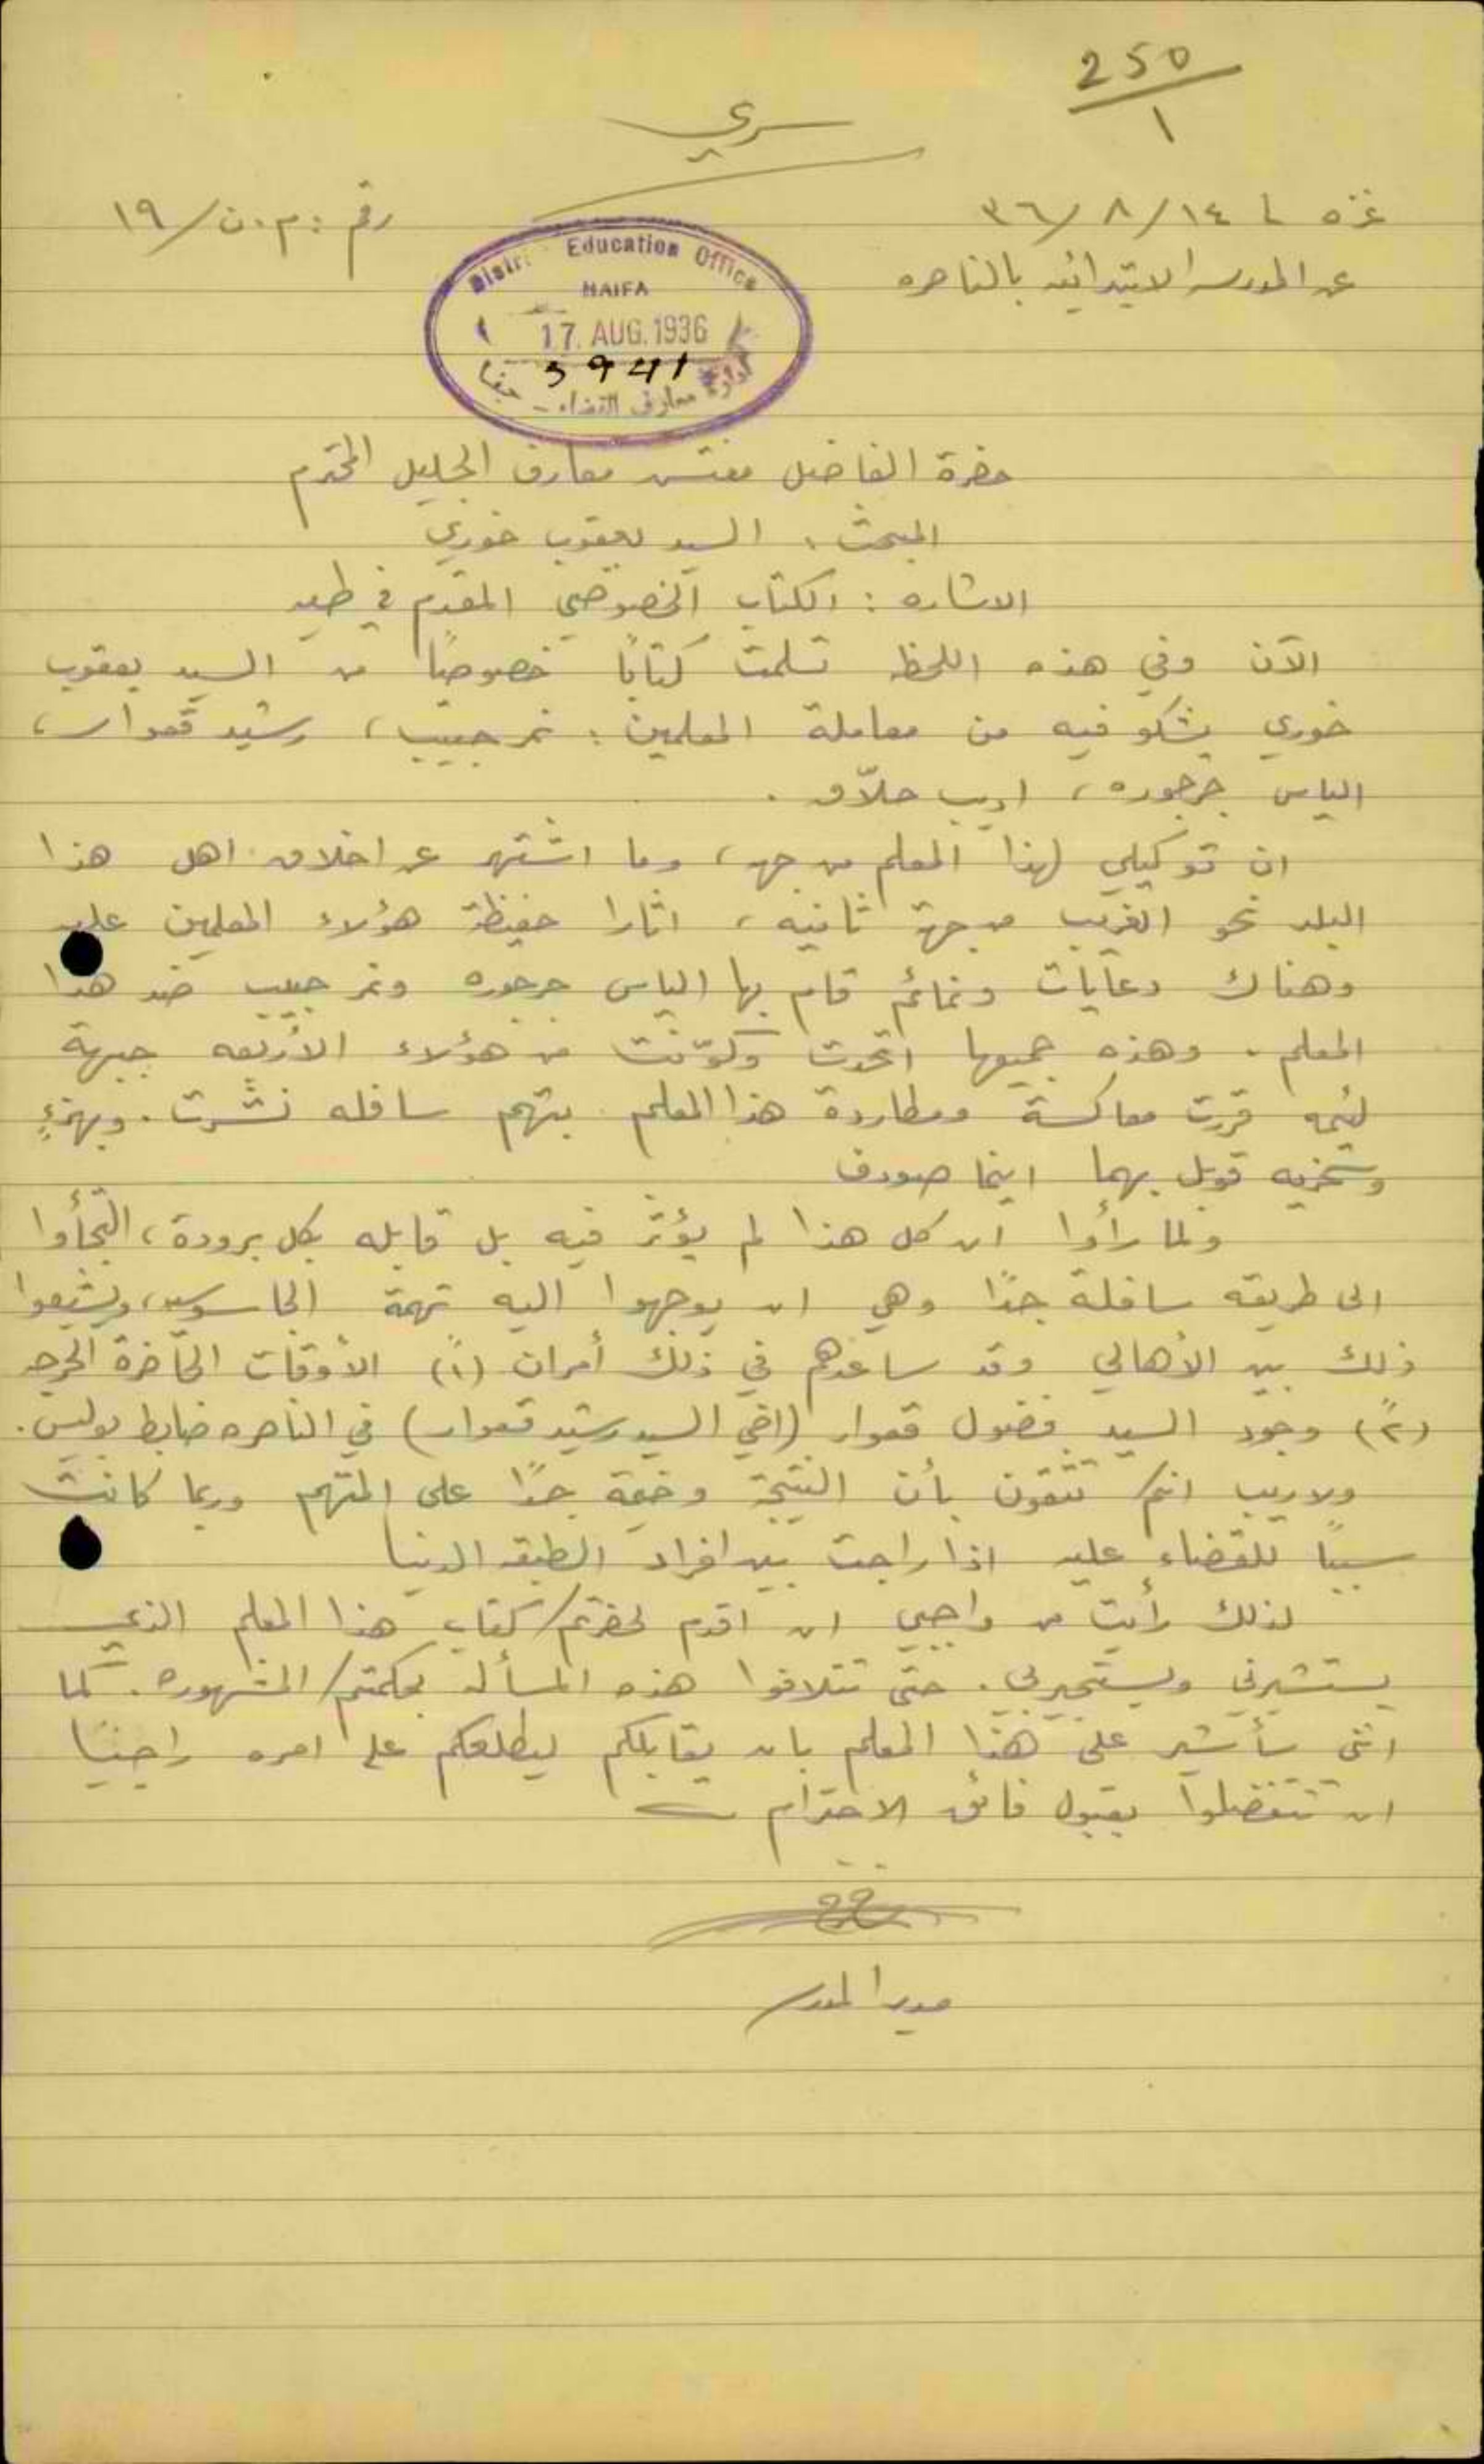 250
١
سري
غزه في ١٤/٨/٣٦
رقم : م.ن/١٩
عن المدرسه الابتدائيه بالناصره
District Education Office
HAIFA
17. AUG. 1936
5941
ادارة معارف القضاء - حيفا
حضرة الفاضل مفتش معارف الجليل المحترم
المبحث : السيد يعقوب خوري
الاشاره : الكتاب الخصوصي المقدم في طيه
الآن وفي هذه اللحظه تسلمت كتابًا خصوصيًا من السيد يعقوب
خوري يشكو فيه من معاملة المعلمين : نمر حبيب، رشيد قعوار،
الياس جرجوره، اديب حلّاق.
ان توكيلي لهذا المعلم من جهه، وما اشتهر عن اخلاق اهل هذا
البلد نحو الغريب من جهة ثانيه، اثارا حفيظة هؤلاء المعلمين عليه
وهناك دعايات ونمائم قام بها الياس جرجوره ونمر حبيب ضد هذا
المعلم. وهذه جميعها اتحدت وكوّنت من هؤلاء الأربعه جبهة
لئيمه قررت معاكسة ومطاردة هذا المعلم بتهم سافله نشرت. وبهزءٍ
وسخريه قوبل بهما اينما صودف
ولما رأوا ان كل هذا لم يؤثر فيه بل قابله بكل برودة، التجأوا
الى طريقه سافلة جدًا وهي ان يوجهوا اليه تهمة الجاسوسيه، ويشيعوا
ذلك بين الأهالي وقد ساعدهم في ذلك أمران (١ً) الأوقات الحاضرة الحرجه
(٢ً) وجود السيد فضول قعوار (اخي السيد رشيد قعوار) في الناصره ضابط بوليس.
ولا ريب انكم تثقون بأن النتيجة وخيمة جدًا على المتهم وربما كانت
سببًا للقضاء عليه اذا راجت بين افراد الطبقه الدنيا
لذلك رأيت من واجبي ان اقدم لحضرتكم كتاب هذا المعلم الذي
يستشيرني ويستجيرني. حتى تتلافوا هذه المسألة بحكمتكم المشهوره. كما
انني سأشير على هذا المعلم بان يقابلكم ليطلعكم على امره راجيًا
ان تتفضلوا بقبول فائق الاحترام
مدير المدرسه